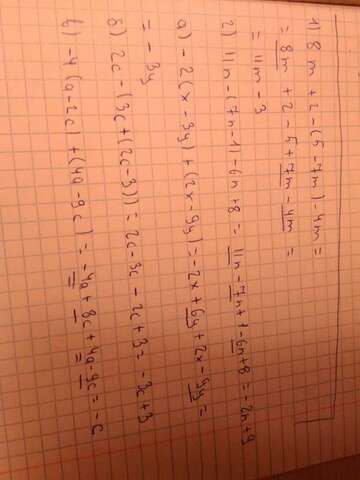 1) 8m + 2 - (5 - 7m) - 4m =
= 8m + 2 - 5 + 7m - 4m =
= 11m - 3
2) 11n - (7n - 1) - 6n + 8 = 11n - 7n + 1 - 6n + 8 = -2n + 9
а) -2(x - 3y) + (2x - 9y) = -2x + 6y + 2x - 9y =
= -3y
б) 2c - (3c + (2c - 3)) = 2c - 3c - 2c + 3 = -3c + 3
в) -4(a - 2c) + (4a - 9c) = -4a + 8c + 4a - 9c = -c